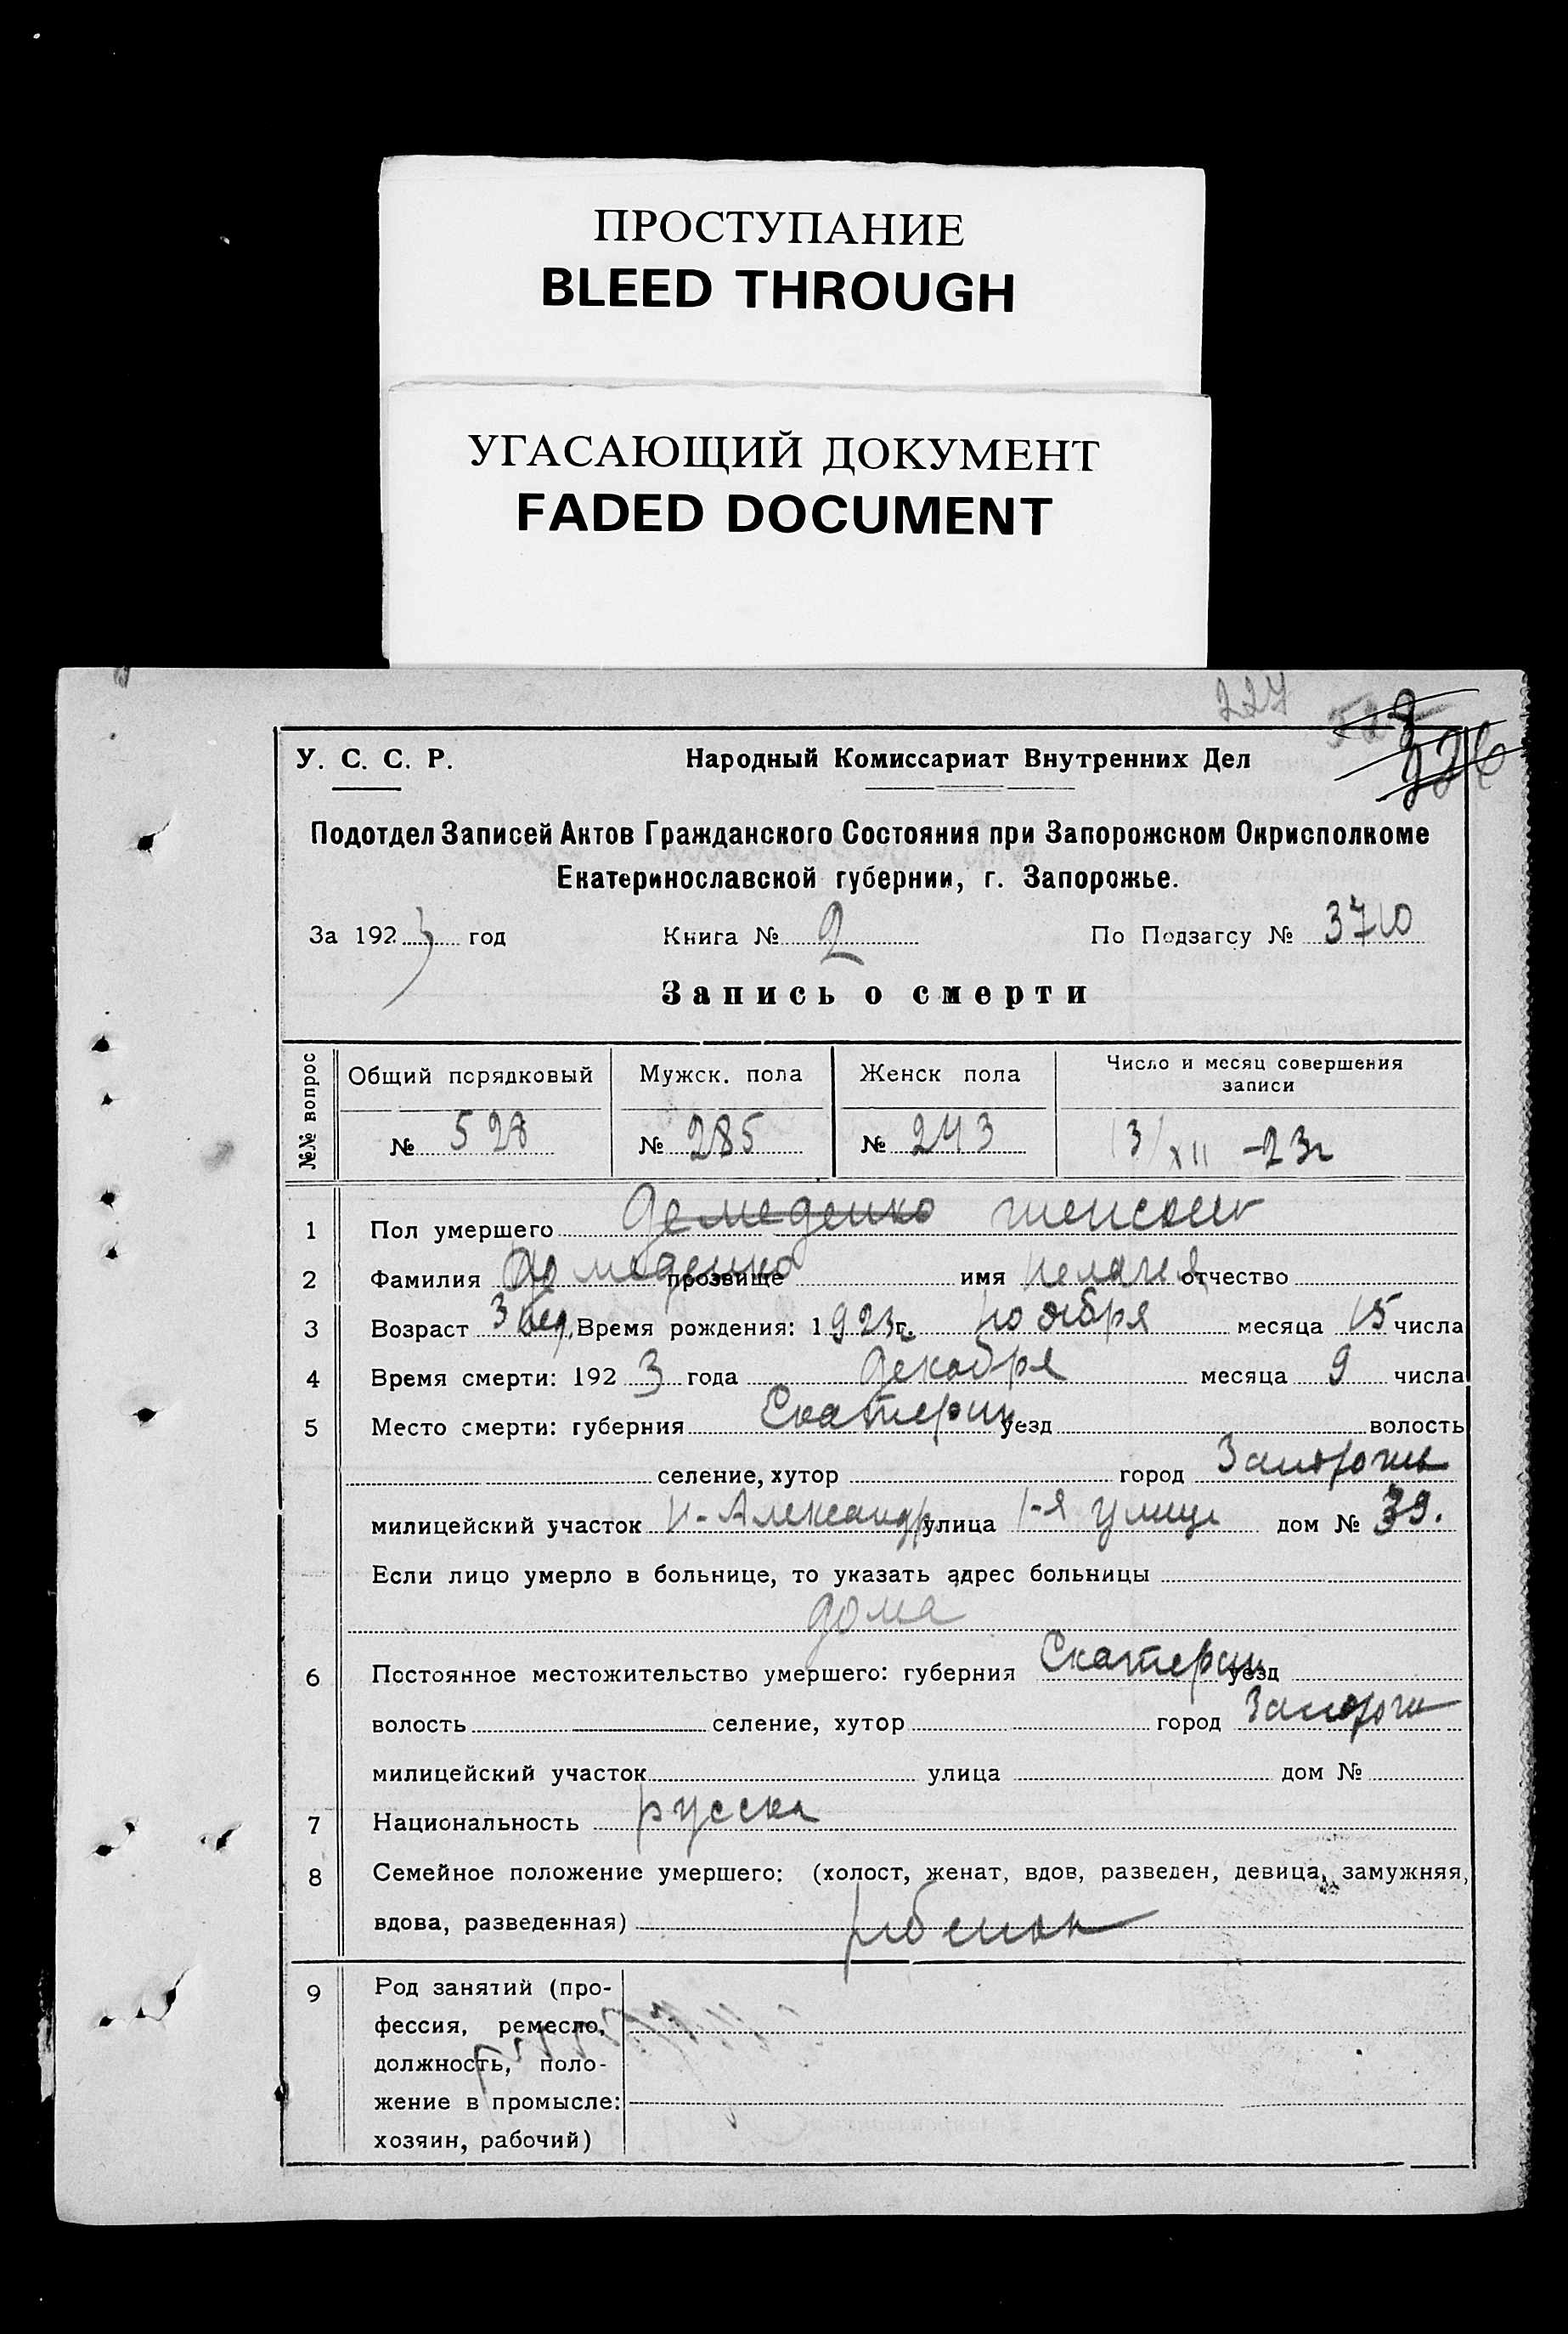 ПРОСТУПАНИЕ
BLEED THROUGH
УГАСАЮЩИЙ ДОКУМЕНТ
FADED DOCUMENT
227
У. С. С. Р. Народный Комиссариат Внутренних Дел
Подотдел Записей Актов Гражданского Состояния при Запорожском Окрисполкоме
Екатеринославской губернии, г. Запорожье.
За 1923 год Книга № 2 По Подзагсу № 3710
Запись о смерти
№№ вопрос
Общий порядковый Мужск. пола Женск пола Число и месяц совершения
записи
№ 528 № 285 № 243 13/XII -23г
1 Пол умершего Демеденко женский
2 Фамилия Демеденко прозвище имя Пелагея отчество
3 Возраст 3 нед. Время рождения: 1923г. ноября месяца 15 числа
4 Время смерти: 1923 года декабря месяца 9 числа
5 Место смерти: губерния Екатерин уезд волость
селение, хутор город Запорожье
милицейский участок Н-Александр улица 1-я улица дом № 39.
Если лицо умерло в больнице, то указать адрес больницы
дома
6 Постоянное местожительство умершего: губерния Екатерин уезд
волость селение, хутор город Запорож
милицейский участок улица дом №
7 Национальность русская
8 Семейное положение умершего: (холост, женат, вдов, разведен, девица, замужняя,
вдова, разведенная) ребенок
9 Род занятий (про-
фессия, ремесло,
должность, поло-
жение в промысле:
хозяин, рабочий)